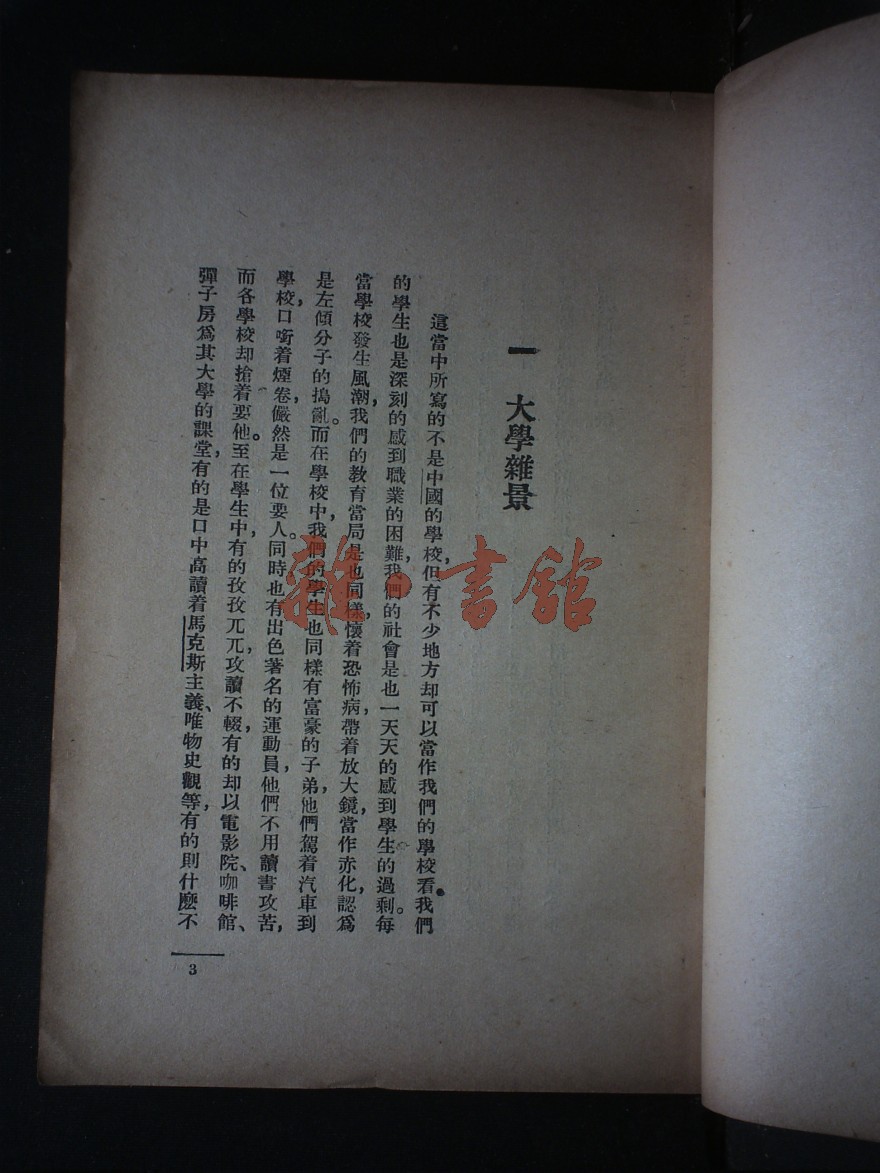 一 大學雜景
這當中所寫的不是中國的學校，但有不少地方却可以當作我們的學校看。我們
的學生也是深刻的感到職業的困難，我們的社會是也一天天的感到學生的過剩。每
當學校發生風潮，我們的教育當局是也同樣懷着恐怖病，帶着放大鏡，當作赤化，認爲
是左傾分子的搗亂。而在學校中，我們的學生也同樣有富豪的子弟，他們駕着汽車到
學校，口啣着煙卷，儼然是一位要人。同時也有出色著名的運動員，他們不用讀書攻苦，
而各學校却搶着要他。至在學生中，有的孜孜兀兀，攻讀不輟，有的却以電影院、咖啡館、
彈子房爲其大學的課堂，有的是口中高讀着馬克斯主義、唯物史觀等，有的則什麽不
3
雜·書館